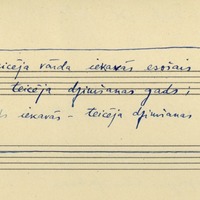 teicēja vārda iekavās esošais
teicēja dzimšanas gads;
iekavās - teicēja dzimšanas